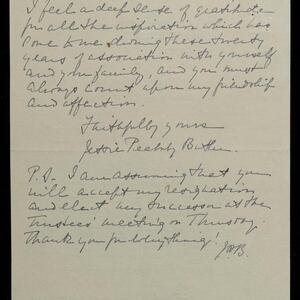 I feel a deep sense of gratitude
for all the inspiration which has
come to me during these twenty
years of association with yourself
and your family, and you must
always count upon my friendship
and affection.
Faithfully yours
Jessie Peabody Butler.
P.S. I am assuming that you
will accept my resignation
and elect my successor at the
Trustees' meeting on Thursday.
Thank you for everything!
JPB.